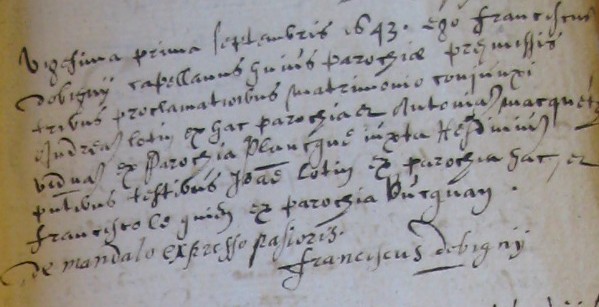 Vigesima prima septembris 1643. ego franciscus
Debigny capellanus huius parochiæ præmissis
tribus proclamationibus matrimonio coniunxi
Andreã lotin ex hac parochia et Antoniã macquet
viduã ex parochia Plancque iuxta Hesdiniũ
pñtibus testibus Joãe Lotin ex parochia hac, et
francisco le quien ex parochia Bucquan.
De mandato expresso pastoris.
franciscus Debigny